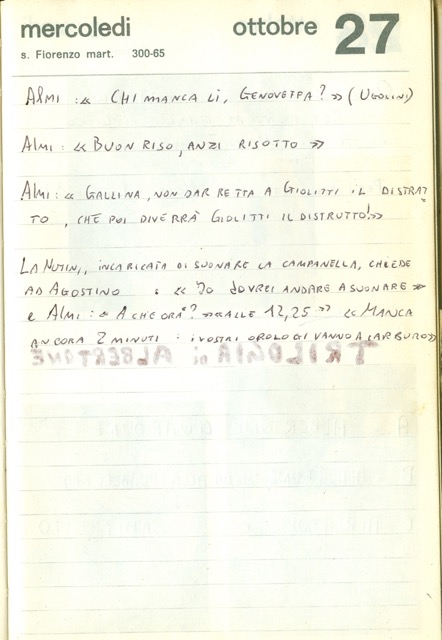 mercoledì ottobre 27
s. Fiorenzo mart. 300-65
ALMI : « CHI MANCA LÌ, GENOVEFFA ? » ( UGOLINI )
ALMI : « BUON RISO, ANZI RISOTTO »
ALMI : « GALLINA, NON DAR RETTA A GIOLITTI IL DISTRAT
TO , CHE POI DIVERRÀ GIOLITTI IL DISTRUTTO! »
LA NUTINI, INCARICATA DI SUONARE LA CAMPANELLA, CHIEDE
AD AGOSTINO : « IO DOVREI ANDARE A SUONARE »
E ALMI : « A CHE ORA ? » « ALLE 12,25 » « MANCA
ANCORA 2 MINUTI : I VOSTRI OROLOGI VANNO A CARBURO »
TRILOGIA di ALBERTONE